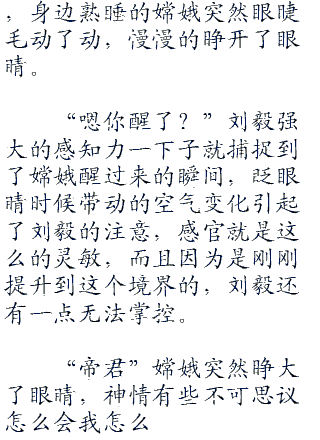 ，身边熟睡的嫦娥突然眼睫
毛动了动，慢慢的睁开了眼
睛。
“嗯你醒了？”刘毅强
大的感知力一下子就捕捉到
了嫦娥醒过来的瞬间，眨眼
睛时候带动的空气变化引起
了刘毅的注意，感官就是这
么的灵敏，而且因为是刚刚
提升到这个境界的，刘毅还
有一点无法掌控。
“帝君”嫦娥突然睁大
了眼睛，神情有些不可思议
怎么会我怎么